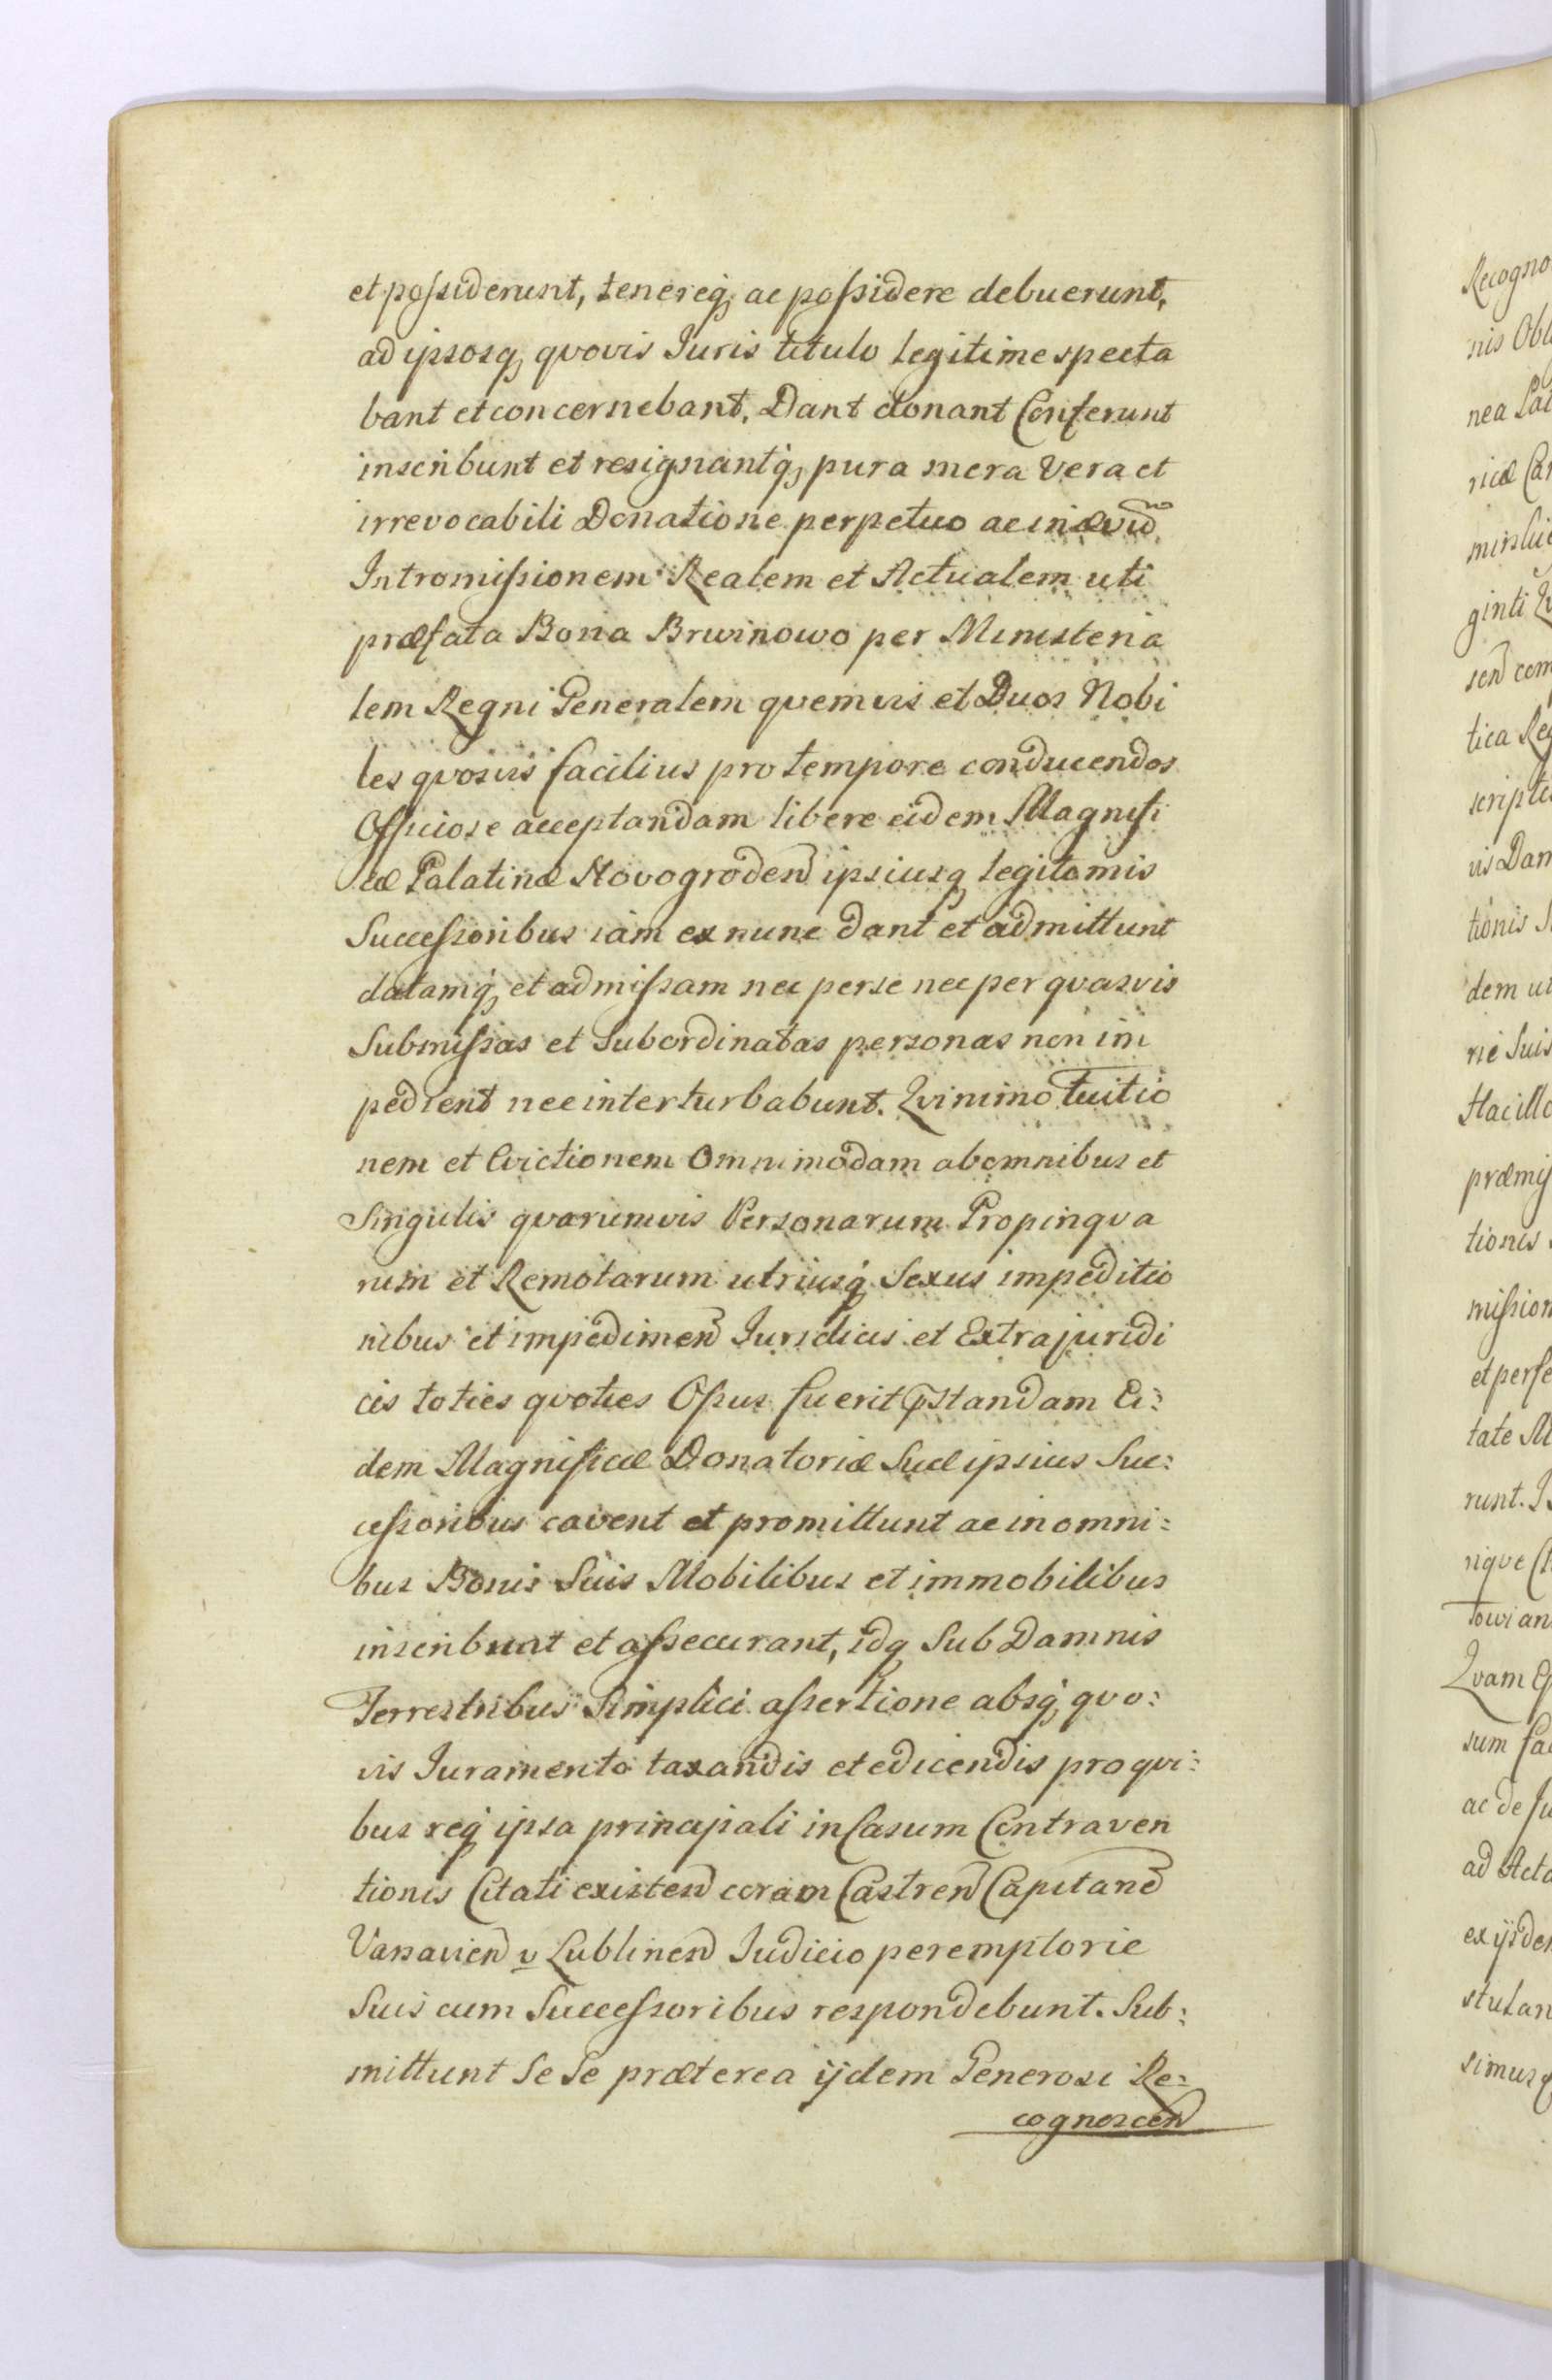 et possiderunt, tenereq; ac possidere debuerunt,
ad ipsosq; qvovis Iuris titulo legitime specta
bant et concernebant. Dant donant Conferunt
inscribunt et resignantq; pura mera vera et
irrevocabili Donatione perpetuo ac in ævũ
Intromissionem Realem et Actualem uti
præfata Bona Brwinowo per Ministeria
lem Regni Generalem qvemvis et Duos Nobi
les qvosvis facilius pro tempore conducendos
Officiose acceptandam libere eidem Magnifi
cæ Palatinæ Novogroden ipsiusq legitomis
Successoribus iam ex nunc dant et admittunt
datamq; et admissam nec per se nec per qvasvis
Submissas et Subordinatas personas non im
pedient nec interturbabunt. Qvinimo Tuitio
nem et Evictionem Omnimodam ab omnibus et
Singulis qvarumvis Personarum Propinqva
rum et Remotarum utriusq Sexus impeditio
nibus et impedimen Iuridicis et Extrajuridi
cis toties qvoties Opus fuerit pstandam Ei:
dem Magnificæ Donatoriæ Suæ ipsius Suc:
cessoribus cavent et promittunt ac in omni:
bus Bonis Suis Mobilibus et immobilibus
inscribunt et assecurant, idq Sub Damnis
Terrestribus Simplici assertione absq; qvo:
vis Iuramento taxandis et edicendis pro qvi:
bus req ipsa principali in Casum Contraven
tionis Citati existen coram Castren Capitane
Varsavien v Lublinen Iudicio peremptorie
Suis cum Successoribus respondebunt. Sub:
mittunt Se Se præterea ijdem Generosi Re:
cognoscen
Recogno
nis Obl
nea Pal
ricæ Ca
ginti
sen com
tica Reg
scripti
vis Dam
tionis S
dem
rie Suis
præmis
tionis
mission
et perfe
tate M
runt. I
nqve
towian
Qvam
sum fa
ac de Ju
ad Acta
ex ijsde
stulan
simus